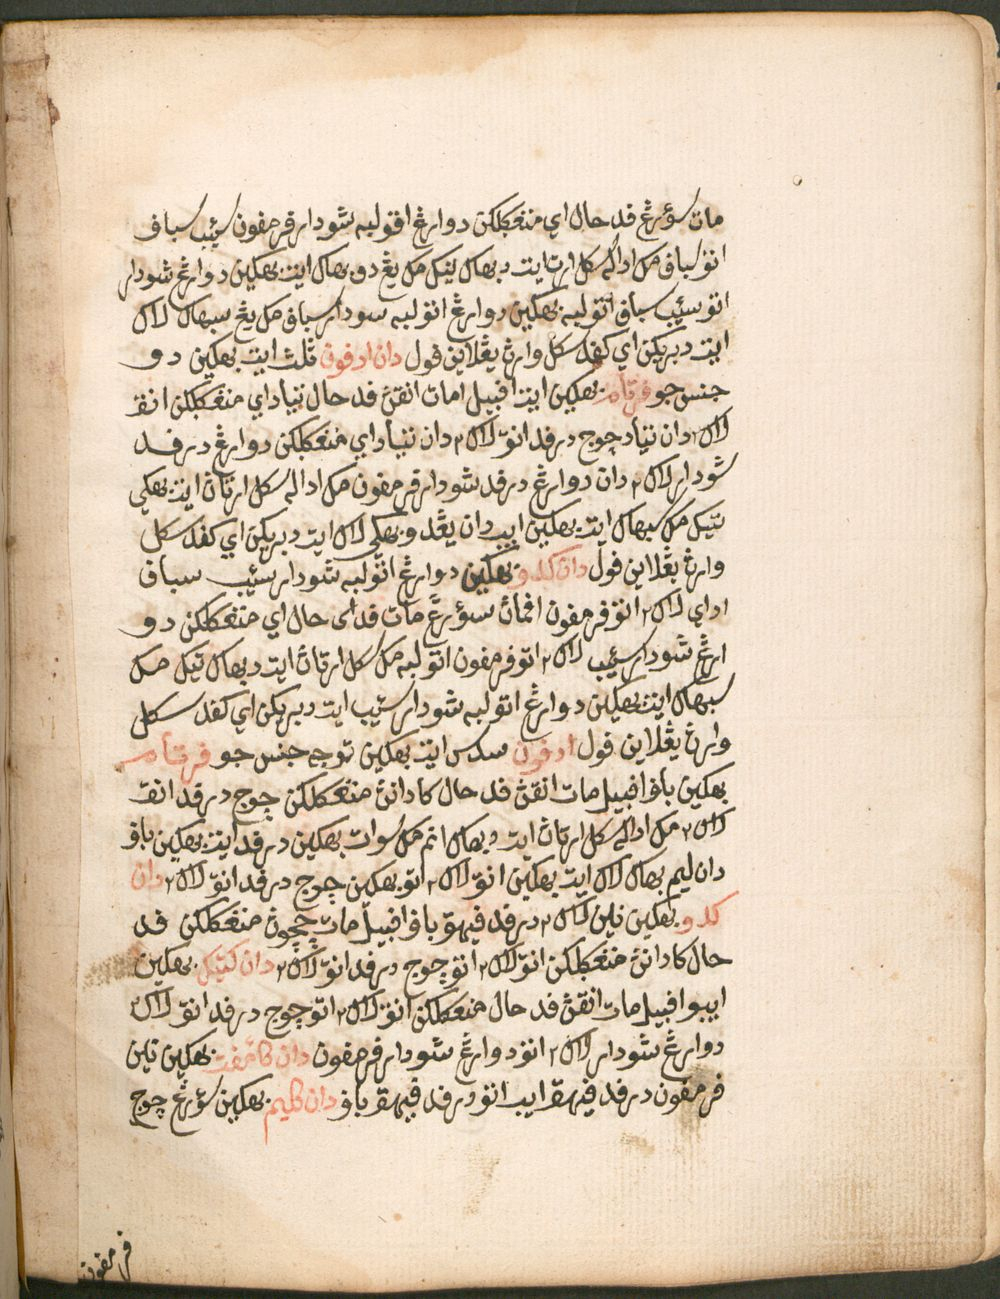 مات سؤرڠ فد حال اي منغݢلكن دوارڠ اتولبه شودار فرمفون سئيب سباف
اتو سباف مك اداله سكل ارت ايت دبهاݢ تيݢ مك يڠ دو بهاݢ ايت بهكين دوارڠ شودار
اتو سئيب سباف اتولبه بهكين دوارڠ اتولبه سودار سباف مك يڠ سبهاݢ لاݢ
ايت دبريكن اي كفد سكل وارث يڠلاين فول دان ادفون ثلث ايت بهكين دو
جنس جو فرتام بهكين ايت افبيل مات انقن فد حال تياد اي منغݢلكن انق
لاك٢ دان تياد چوچ درفد انق لاك٢ دان تياد اي منغݢلكن دوارڠ درفد
شودار لاك٢ دان دوارڠ درفد شودار فرمفون مك اداله سكل ارتاڽ ايت بهݢي
تيݢ مك سبهاݢ ايت بهكين ايب دان يڠدو بهݢي لاݢ ايت دبريكن اي كفد سكل
وارث يڠلاين فول دان كدو بهكين دوارڠ اتولبه شودار سئيب سباف
اداي لاك٢ اتو فرمفون افمان سؤرڠ مات فد اي حال اي منغݢلكن دو
ارڠ شودار سئيب لاك٢ اتو فرمفون اتولبه مك سكل ارتاڽ ايت دبهاݢ تيݢ مك
سبهاݢ ايت بهكين دوارڠ اتولبه شودار سئيب ايت دبريكن اي كفد سكل
وارث يڠلاين فول ادفون سدس ايت بهكين توجه جنس جو فرتام
بهكين باف افبيل مات انقن فد حال كادانن منغݢلكن چوچ درفد انق
لاك٢ مك اداله سكل ارتاڽ ايت دبهاݢ انم مك سوات بهكين درفد ايت بهكين باف
دان ليم بهاݢ لاݢ ايت بهكين انق لاك٢ اتو بهكين چوچ درفد انق لاك٢ دان
كدو بهكين نين لاك٢ درفد فيهق باف افبيل مات چوچون منغݢلكن فد
حال كادانن منغݢلكن انق لاك٢ اتو چوچ درفد انق لاك٢ دان كتيݢ بهكين
ايبو افبيل مات انقن فد حال منغݢلكن انق لاك٢ اتو چوچ درفد انق لاك٢
دوارڠ شودار لاك٢ اتو دوارڠ شودار فرمفون دان كأمفت بهكين نين
فرمفون درفد فيهق ايب اتو درفد فيهق باف دان كليم بهكين سؤرڠ چوچ
فرمفون